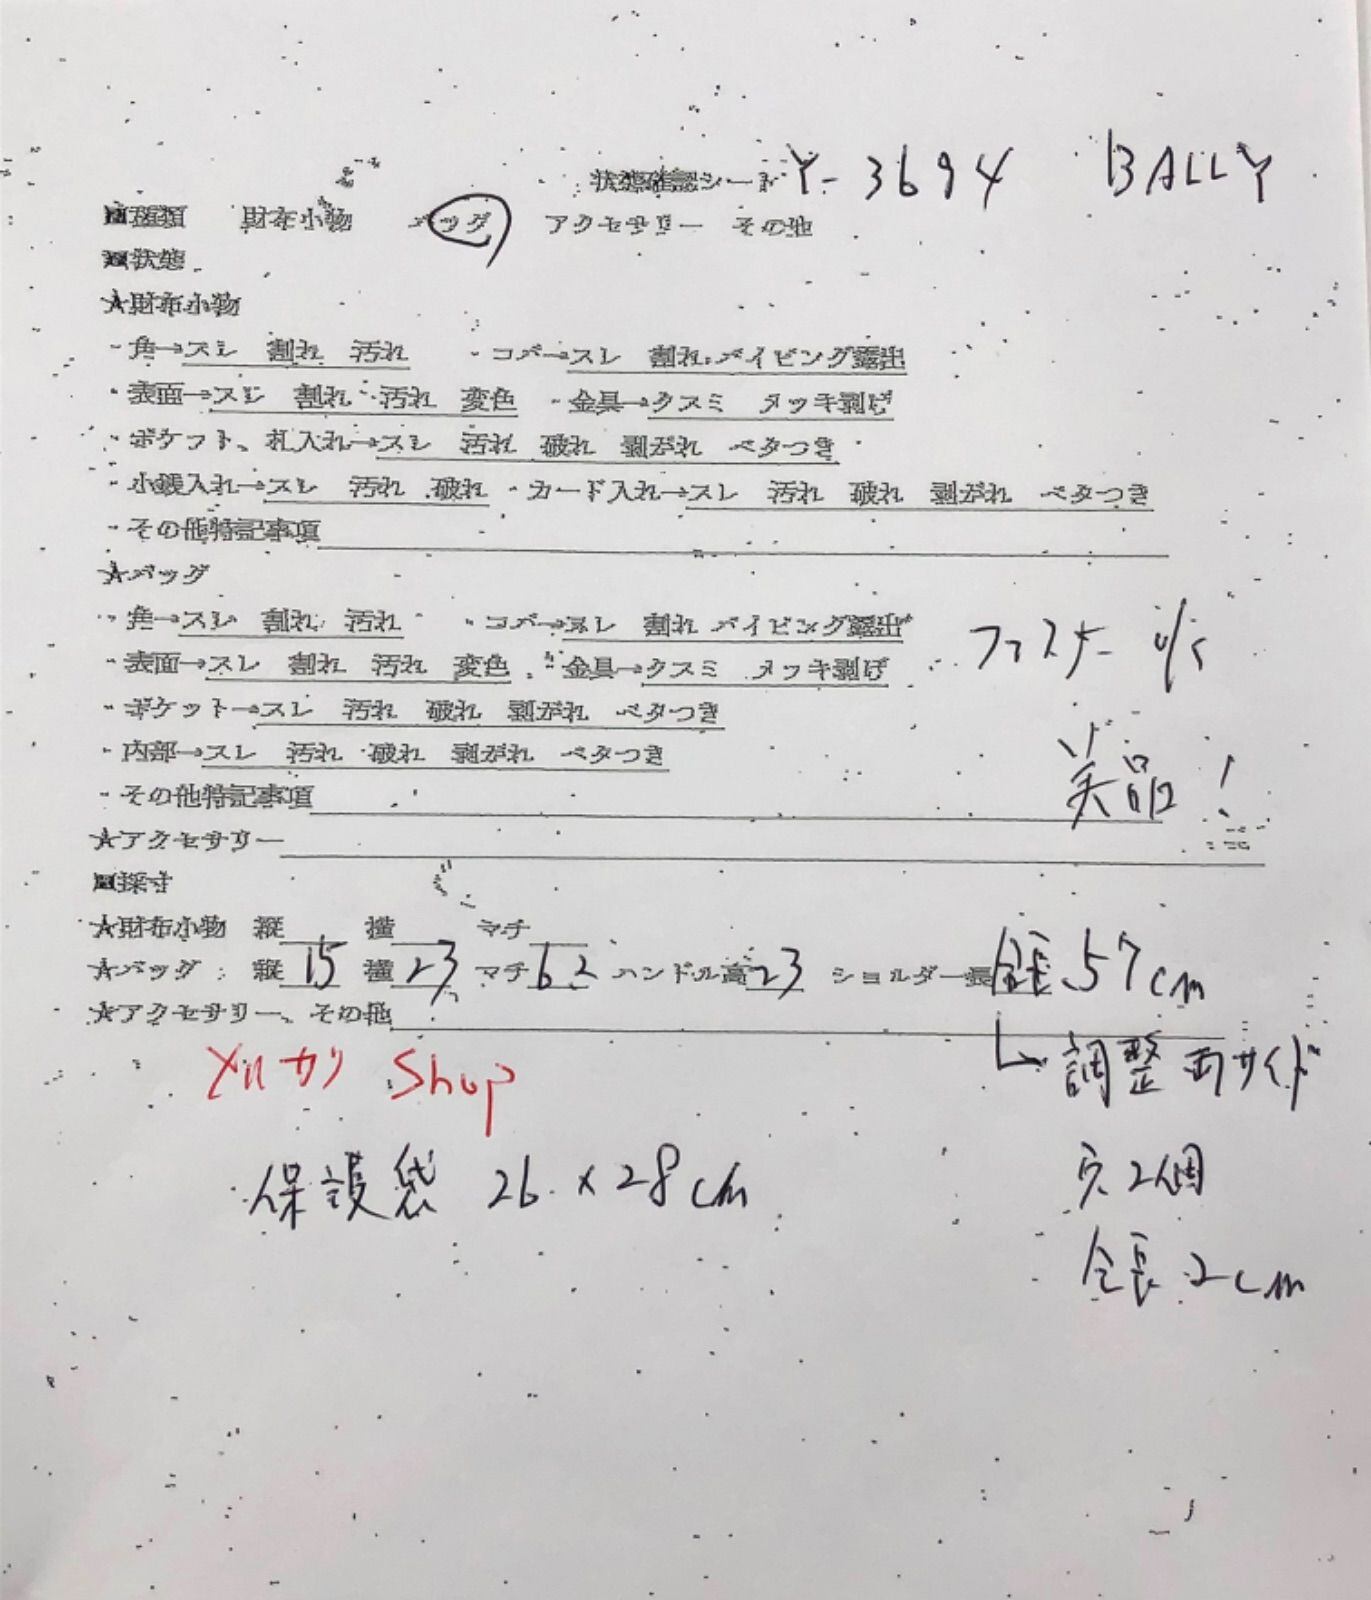 状態確認シート Y-3694 BALLY
■種類 財布小物 バッグ アクセサリー その他
■状態
★財布小物
・角→スレ 割れ 汚れ ・コバ→スレ 割れ パイピング露出
・表面→スレ 割れ 汚れ 変色 ・金具→クスミ メッキ剥げ
・ポケット、札入れ→スレ 汚れ 破れ 剥がれ ベタつき
・小銭入れ→スレ 汚れ 破れ ・カード入れ→スレ 汚れ 破れ 剥がれ ベタつき
・その他特記事項
★バッグ
・角→スレ 割れ 汚れ ・コバ→スレ 割れ パイピング露出
・表面→スレ 割れ 汚れ 変色 ・金具→クスミ メッキ剥げ
ファスナー
・ポケット→スレ 汚れ 破れ 剥がれ ベタつき
・内部→スレ 汚れ 破れ 剥がれ ベタつき
美品!
・その他特記事項
★アクセサリー
■採寸
★財布小物 縦 横 マチ
★バッグ 縦 15 横 23 マチ 6.2 ハンドル高 23 ショルダー長 全長 57cm
★アクセサリー、その他
↳調整 両サイド
メルカリ Shop
穴 2個
保護袋 26×28cm
全長 2cm